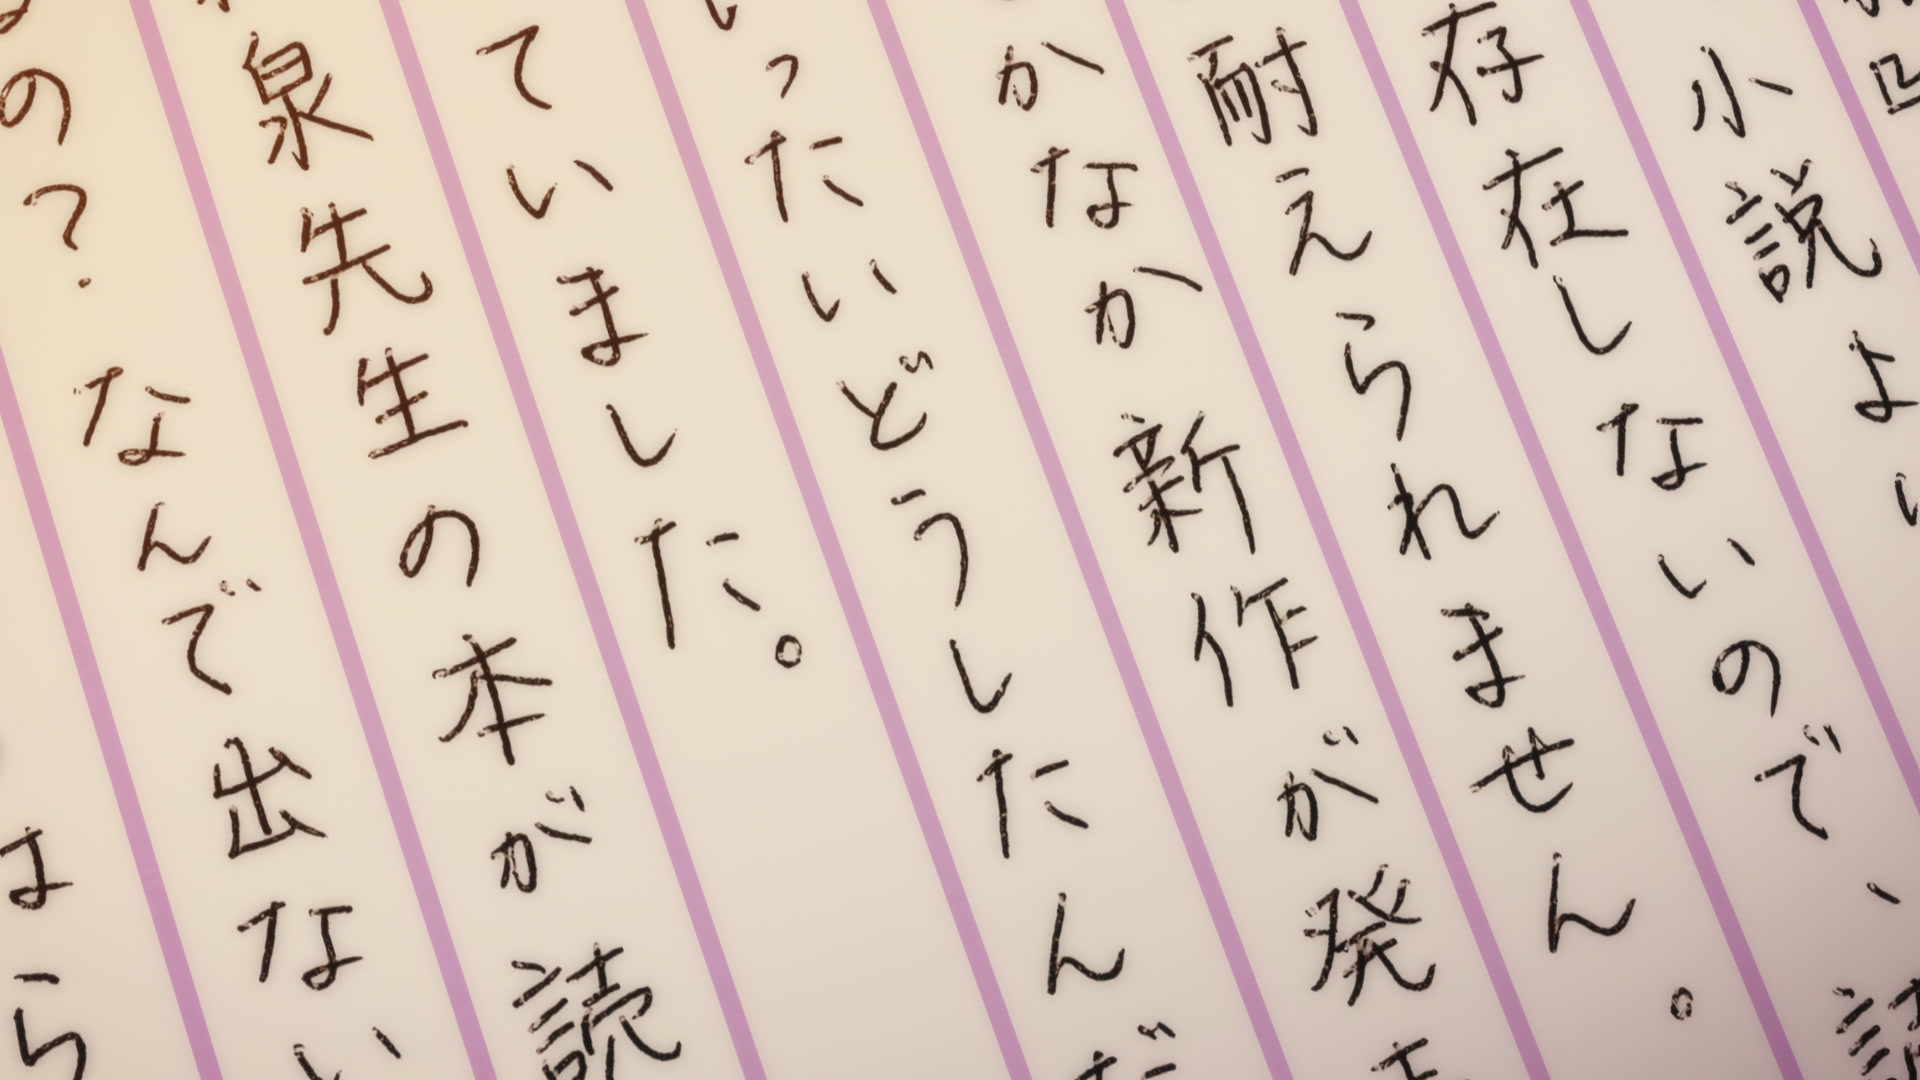 小説よ
存在しないので、
耐えられません。
かなか新作が発
ったいどうしたんだ
ていました。
泉先生の本が読
の？なんで出ない
はら